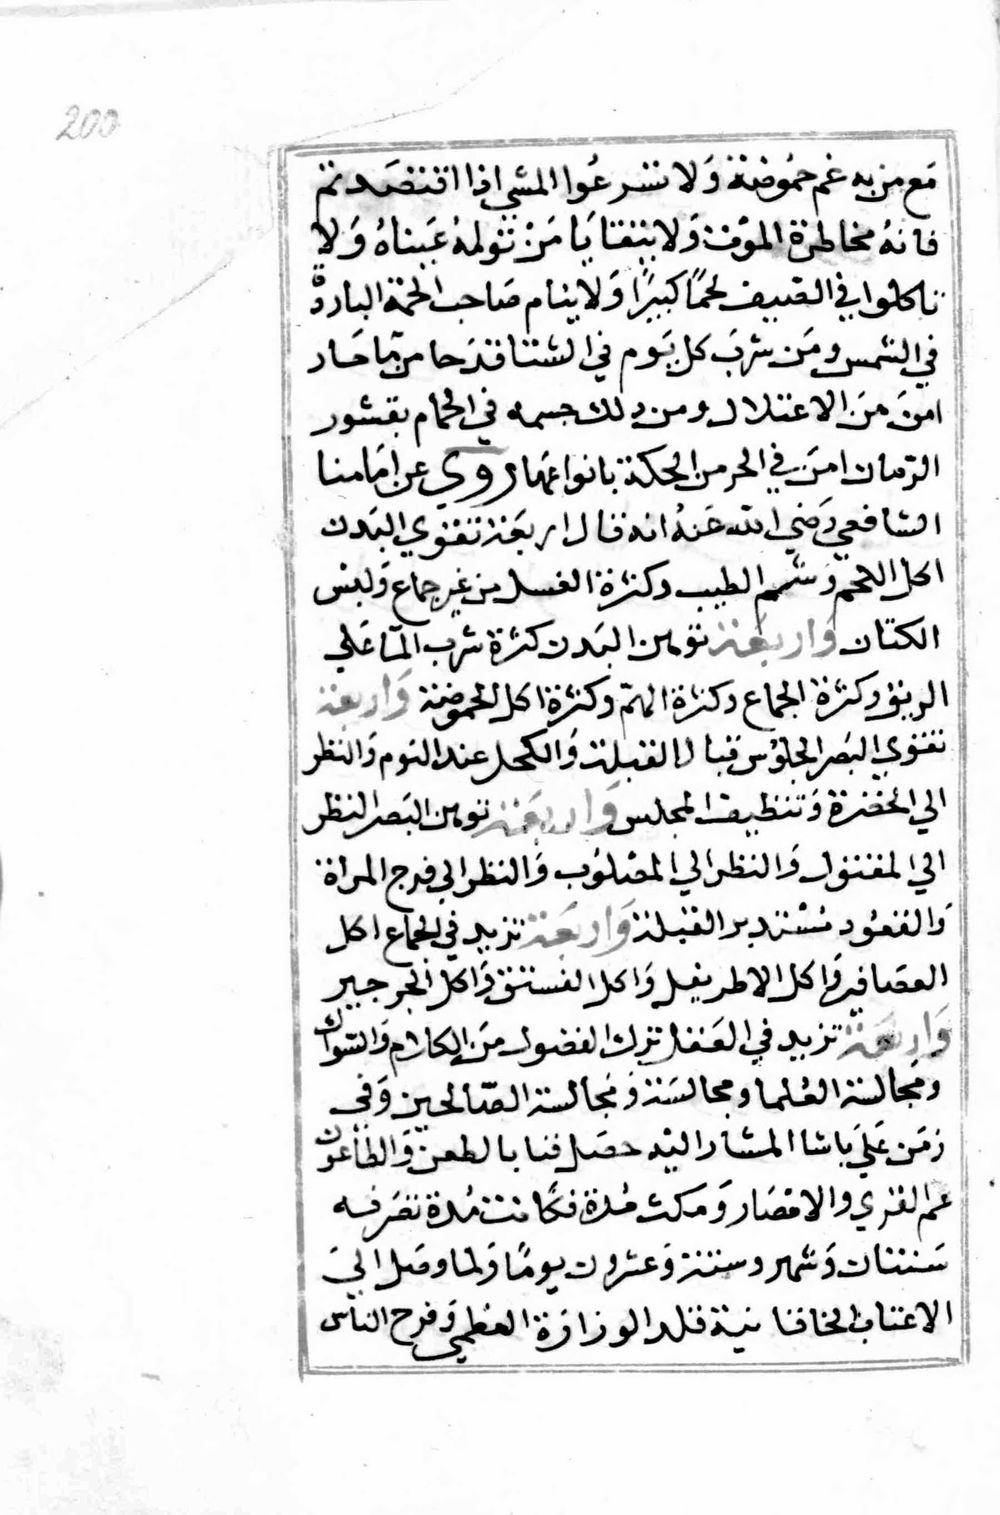 200
مع من به غم حموضة ولا تسرعوا المشي اذا اقتصدتم
فانه مخاطرة الموت ولا يتقايا من تولمه عيناه ولا
تاكلوا في الصيف لحما كبيرا ولا ينام صاحب الحمة الباردة
في الشمس ومن شرب كل يوم في الشتا قدحا من ما حار
امن من الاعتلال ومن دلك جسمه في الحمام بقشور
الرمان امن في الحر من الحكة بانواعها روي عن امامنا
الشافعي رضي الله عنه انه قال اربعة تقوي البدن
اكل اللحم وشم الطيب وكثرة الغسل من غير جماع ولبس
الكتان واربعة توهن البدن كثرة شرب المآ علي
الريق وكثرة الجماع وكثرة الهم وكثرة اكل الحموضة واربعة
تقوي البصر الجلوس قبال القبلة والكحل عند النوم والنظر
الي الخضرة وتنظيف المجلس واربعة توهن البصر النظر
الي المقتول والنظر الي المصلوب والنظر الي فرج المراة
والقعود مستدبر القبلة واربعة تزيد في الجماع اكل
العصافير واكل الاطريفل واكل الفستق واكل الجرجير
واربعة تزيد في العقل ترك الفضول من الكلام والسواك
ومجالسة العلما ومجالسة ومجالسة الصالحين وفي
زمن علي باشا المشار اليه حصل فنا بالطعن والطاعون
عم القري والامصار ومكث مدة فكانت مدة تصرفه
سنتان وشهر وستة وعشرون يوما ولما وصل الي
الاعتاب الخاقانية قلد الوزارة العظمي وفرح الناس